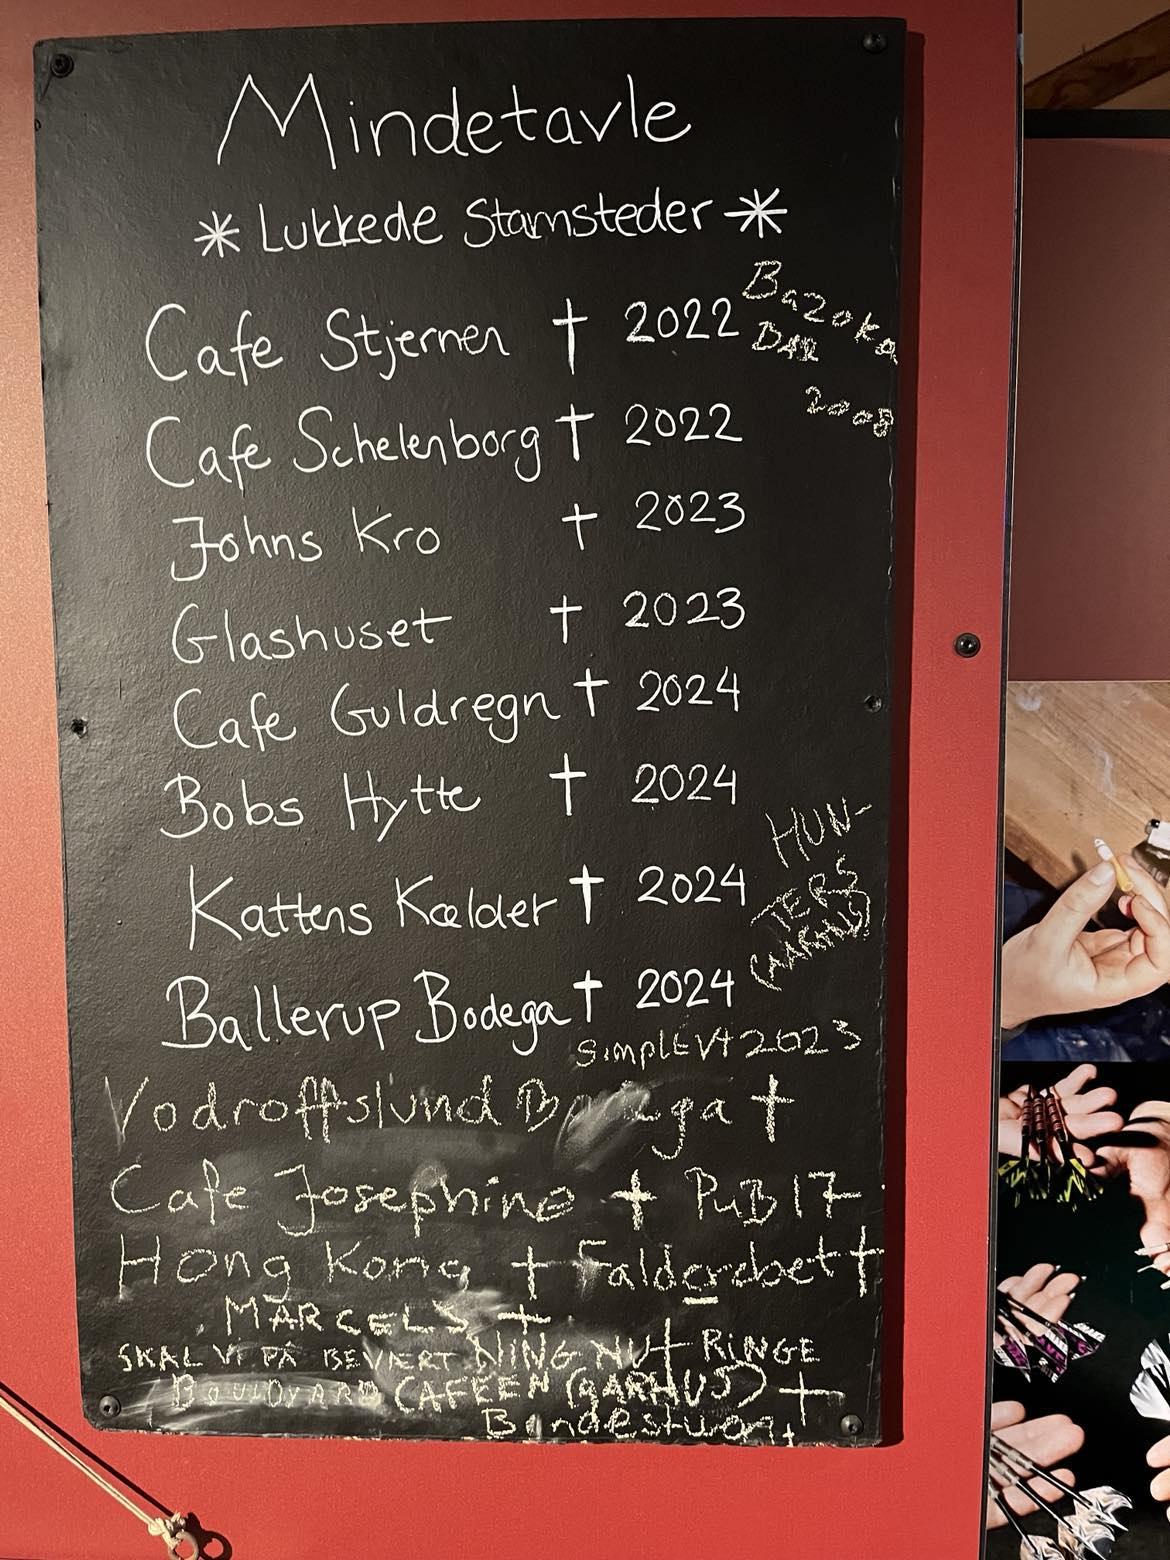 Mindetavle
* Lukkede Stamsteder *
Cafe Stjernen † 2022
Bazoka
BAR
2008
Cafe Schelenborg † 2022
Johns Kro † 2023
Glashuset † 2023
Cafe Guldregn † 2024
Bobs Hytte † 2024
Kattens Kælder † 2024
HUN-
TERS
Ballerup Bodega † 2024
SimplEVt 2023
Vodroffslund †
Cafe Josephine † PUB 17
Hong Kong † Falderebet †
MARCELS †
SKAL VI PÅ BEVÆRT NING NU † RINGE
BOULEVARD CAFEEN (AARHUS) †